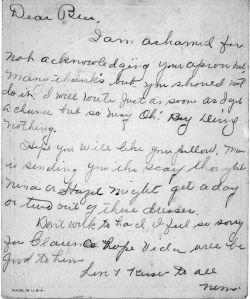 Dear Bess.
I am ashamed for
not acknowledging your apron but
Many thanks but you should not
do it. I will write just as soon as I get
a chance but so busy Oh! Boy doing
nothing.
Hope you will like your pillow, Mama
is sending you the scay thought
Nina or Hazel might get a day
or two out of these dresses.
Don't work to hard, I feel so sorry
for Clarence hope Vida will be
good to him
Love & Kisses to all
MADE IN U.S.A.